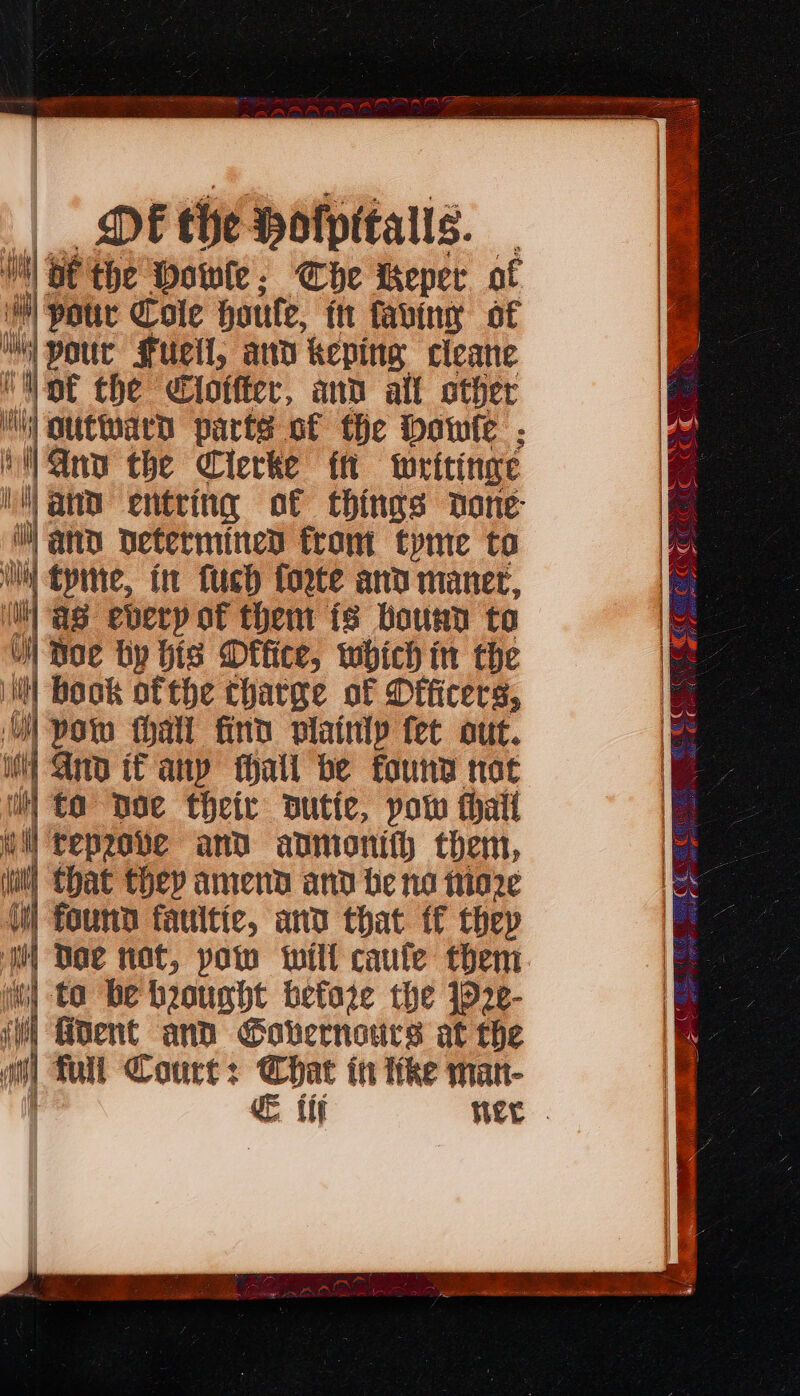 Of the Hoſpitalls.
of the Howſe; The Keper of
your Cole houſe, in ſaving of
your Fuell, and keping cleane
of the Cloiſter, and all other
outward parts of the Howſe ;
And the Clerke in writinge
and entring of things done
and determined from tyme to
tyme, in ſuch ſorte and maner,
as every of them is bound to
doe by his Office, which in the
book of the charge of Officers,
yow ſhall find plainly ſet out.
And if any ſhall be found not
to doe their dutie, yow ſhall
reprove and admoniſh them,
that they amend and be no more
found faultie, and that if they
doe not, yow will cauſe them
to be brought before the Pre-
ſident and Governours at the
full Court: That in like man-
E iij ner